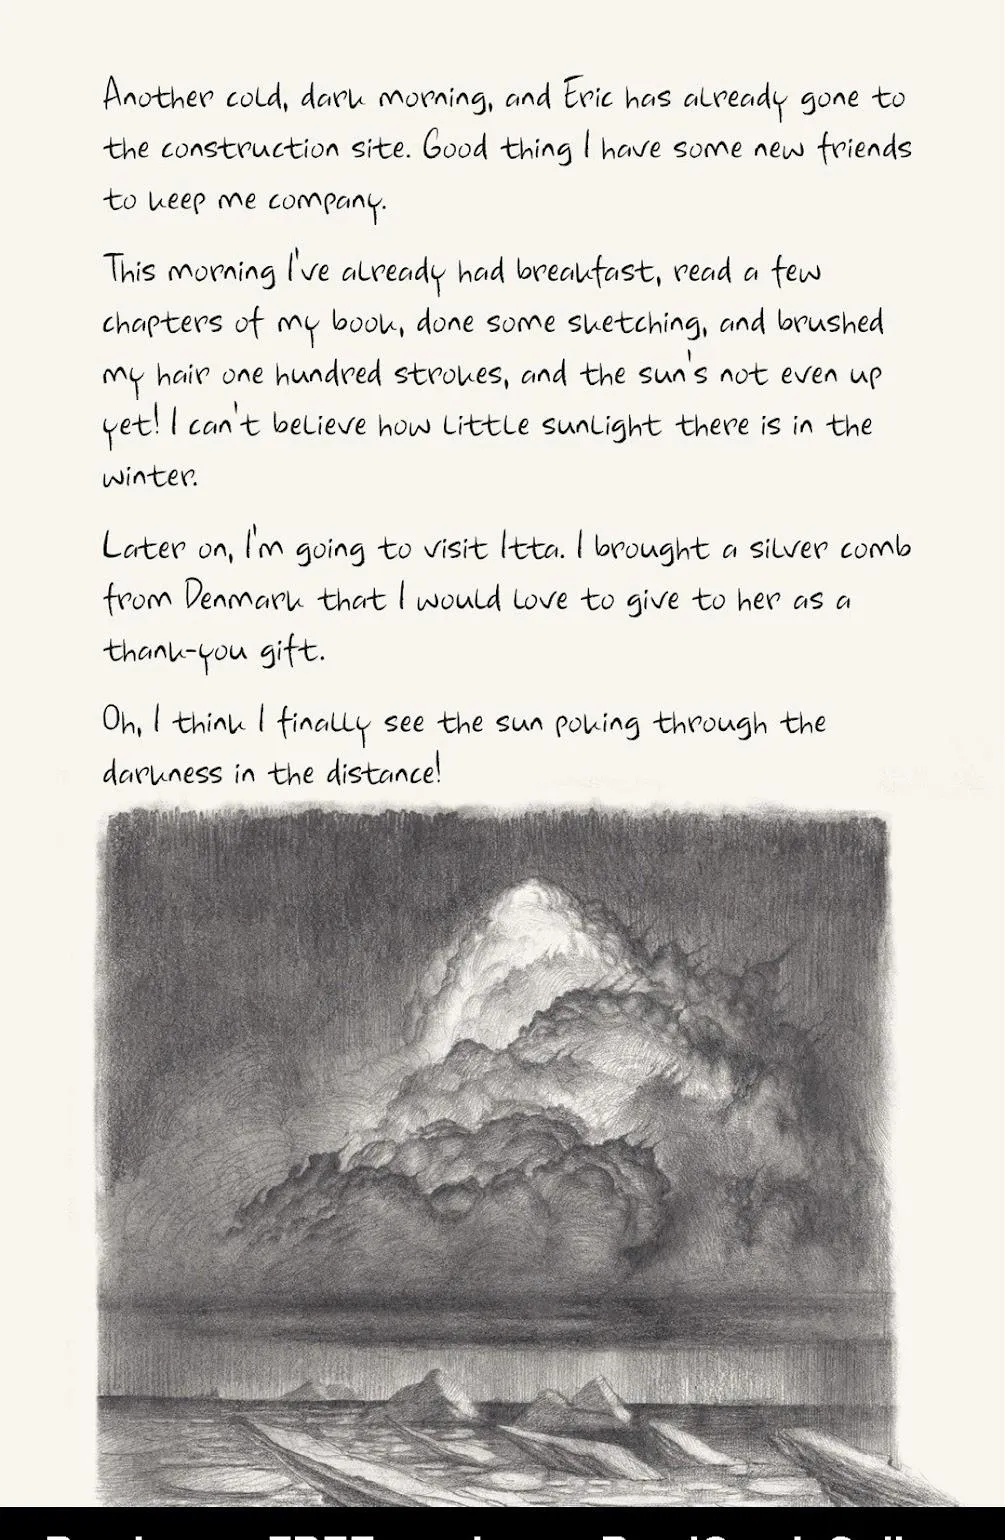 Another cold, dark morning, and Eric has already gone to
the construction site. Good thing I have some new friends
to keep me company.
This morning I've already had breakfast, read a few
chapters of my book, done some sketching, and brushed
my hair one hundred strokes, and the sun's not even up
yet! I can't believe how little sunlight there is in the
winter.
Later on, I'm going to visit Itta. I brought a silver comb
from Denmark that I would love to give to her as a
thank-you gift.
Oh, I think I finally see the sun poking through the
darkness in the distance!